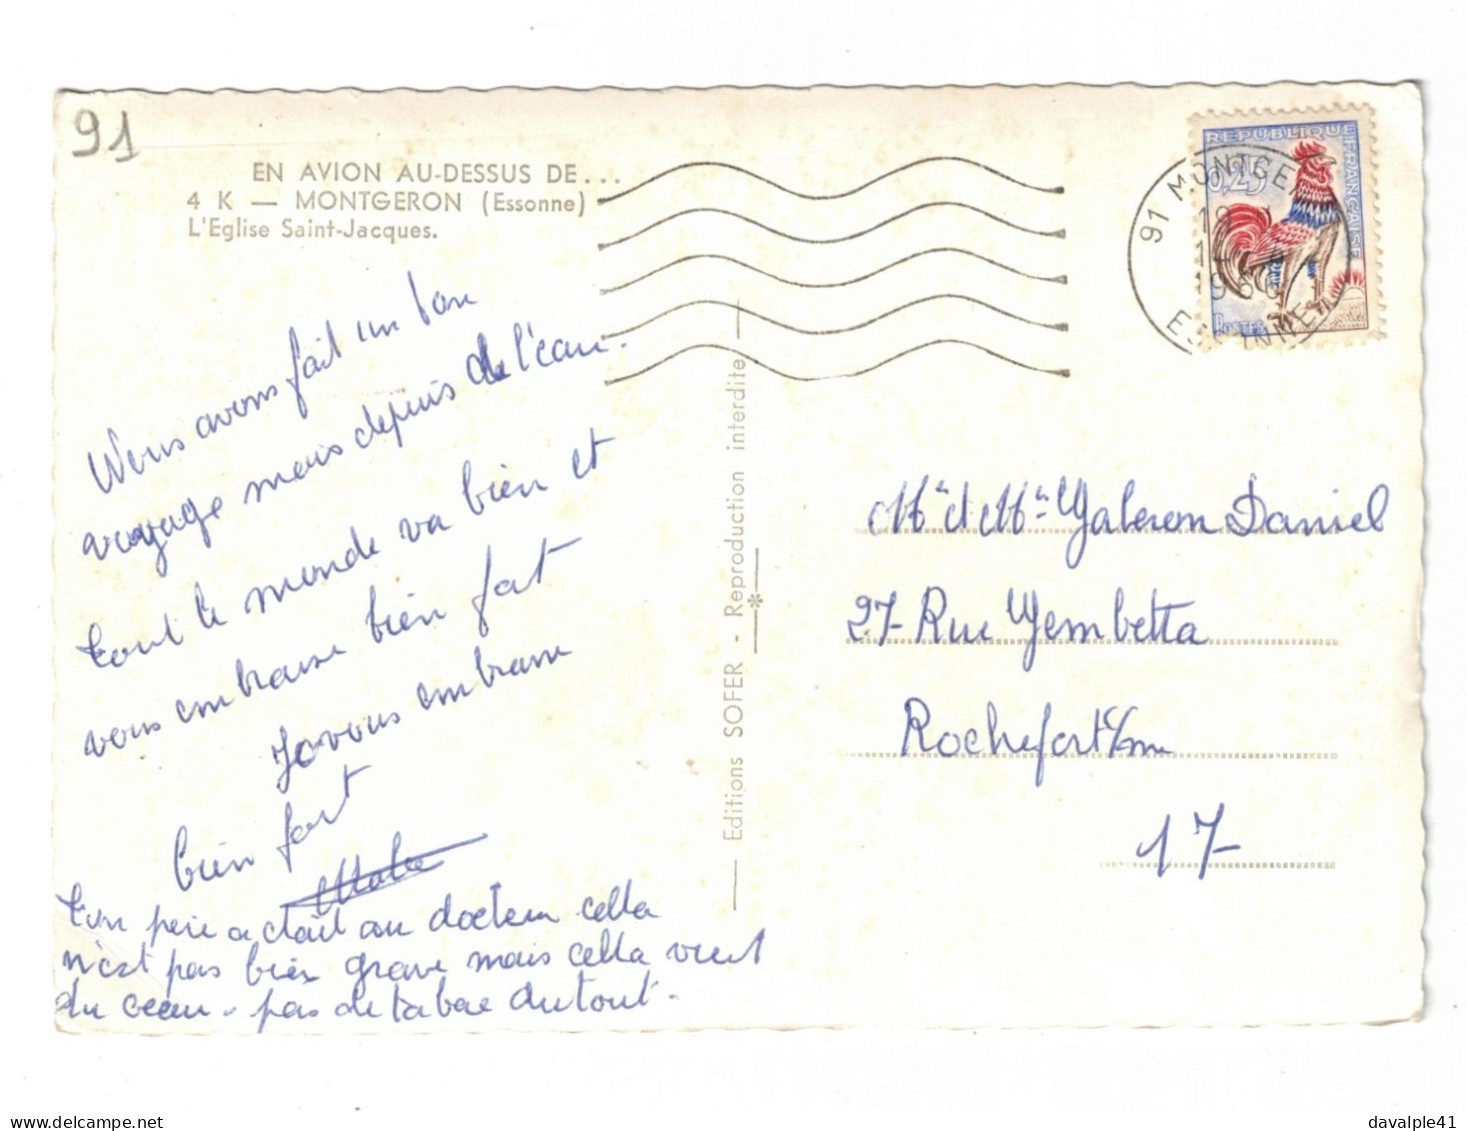 91
EN AVION AU-DESSUS DE...
4 K — MONTGERON (Essonne)
L'Eglise Saint-Jacques.
Nous avons fait un bon
voyage mais depuis de l'eau.
tout le monde va bien et
vous embrasse bien fort
Je vous embrasse
bien fort
ton père a était au docteur cella
n'est pas bien grave mais cella vient
du coeur - pas de tabac du tout -
Editions SOFER - Reproduction interdite
REPUBLIQUE FRANÇAISE
0,25
POSTES
91 MONTGE
19
196
ESSONNE
Mr et Mme Yaleron Daniel
27 Rue Yembetta
Rochefort s/m
17
delcampe.net
davalple41